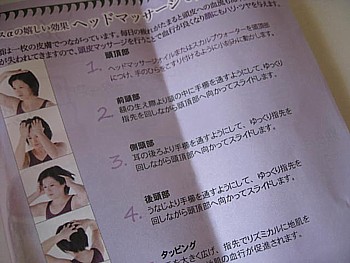 αの嬉しい効果 ヘッドマッサージ
は一枚の皮膚でつながっています。毎日の疲れがたまると頭皮への血流も
が失われてきますので、頭皮マッサージを行うことで血行が良くなり顔にもハリ・ツヤを与えます。
頭頂部
1. ヘッドマッサージオイルまたはスカルプウォーターを頭頂部
につけ、手のひらをこすり付けるように小刻みに動かします。
前頭部
2. 額の生え際より髪の中に手櫛を通すようにして、ゆっくり
指先を回しながら頭頂部へ向かってスライドします。
側頭部
3. 耳の後ろより手櫛を通すようにして、ゆっくり指先を
回しながら頭頂部へ向かってスライドします。
後頭部
4. うなじより手櫛を通すようにして、ゆっくり指先を
回しながら頭頂部へ向かってスライドします。
タッピング
大きく広げ、指先でリズミカルに地肌を
肌の血行が促進されます。